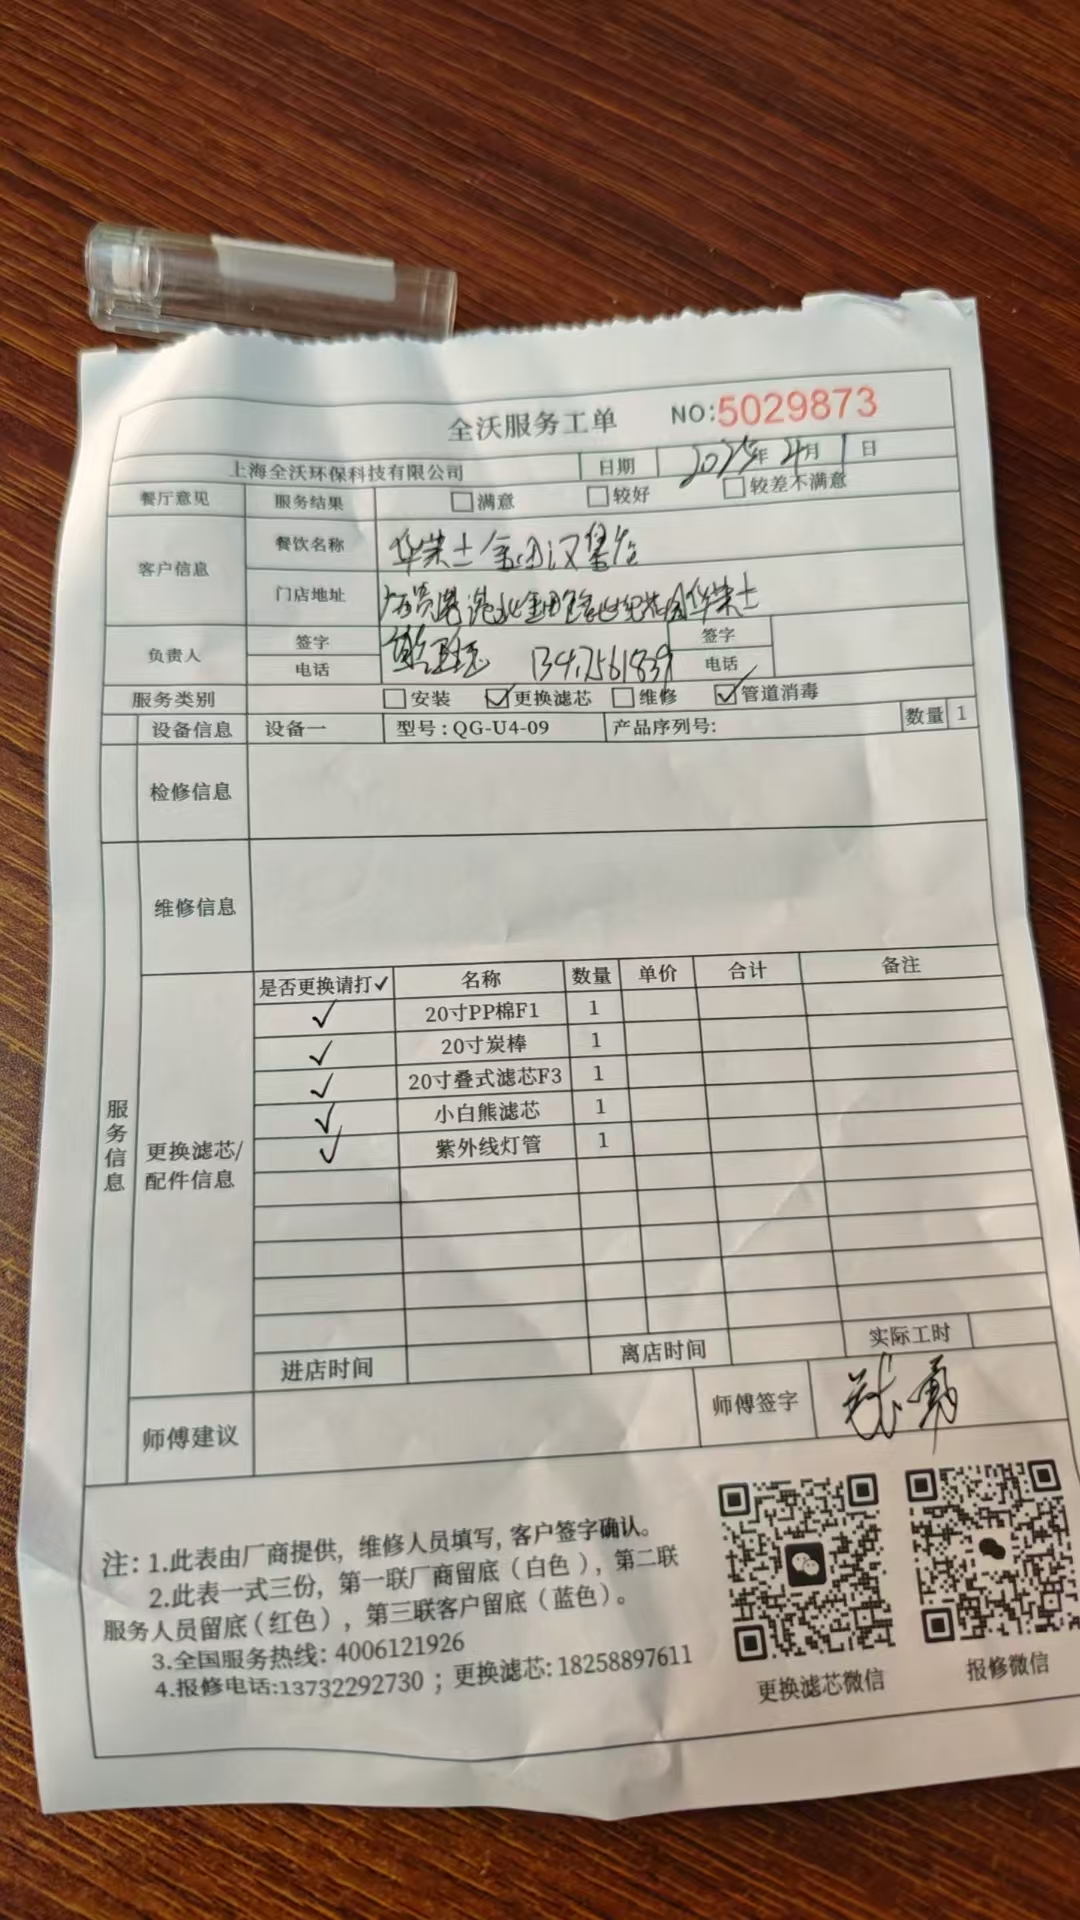 全沃服务工单 NO:5029873
上海全沃环保科技有限公司 日期 2025年4月1日
餐厅意见 服务结果 满意 较好 较差不满意
客户信息 餐饮名称 华莱士金田汉堡店
门店地址 华莱士
负责人 签字 签字
电话 电话
服务类别 安装 ✓更换滤芯 维修 ✓管道消毒
设备信息 设备一 型号:QG-U4-09 产品序列号: 数量 1
检修信息
维修信息
服务信息
更换滤芯/配件信息
是否更换请打✓ 名称 数量 单价 合计 备注
✓ 20寸PP棉F1 1
✓ 20寸炭棒 1
✓ 20寸叠式滤芯F3 1
✓ 小白熊滤芯 1
✓ 紫外线灯管 1
进店时间 离店时间 实际工时
师傅建议 师傅签字
注:1.此表由厂商提供,维修人员填写,客户签字确认。
2.此表一式三份,第一联厂商留底(白色),第二联
服务人员留底(红色),第三联客户留底(蓝色)。
3.全国服务热线:4006121926
4.报修电话:13732292730 ;更换滤芯:18258897611
更换滤芯微信 报修微信